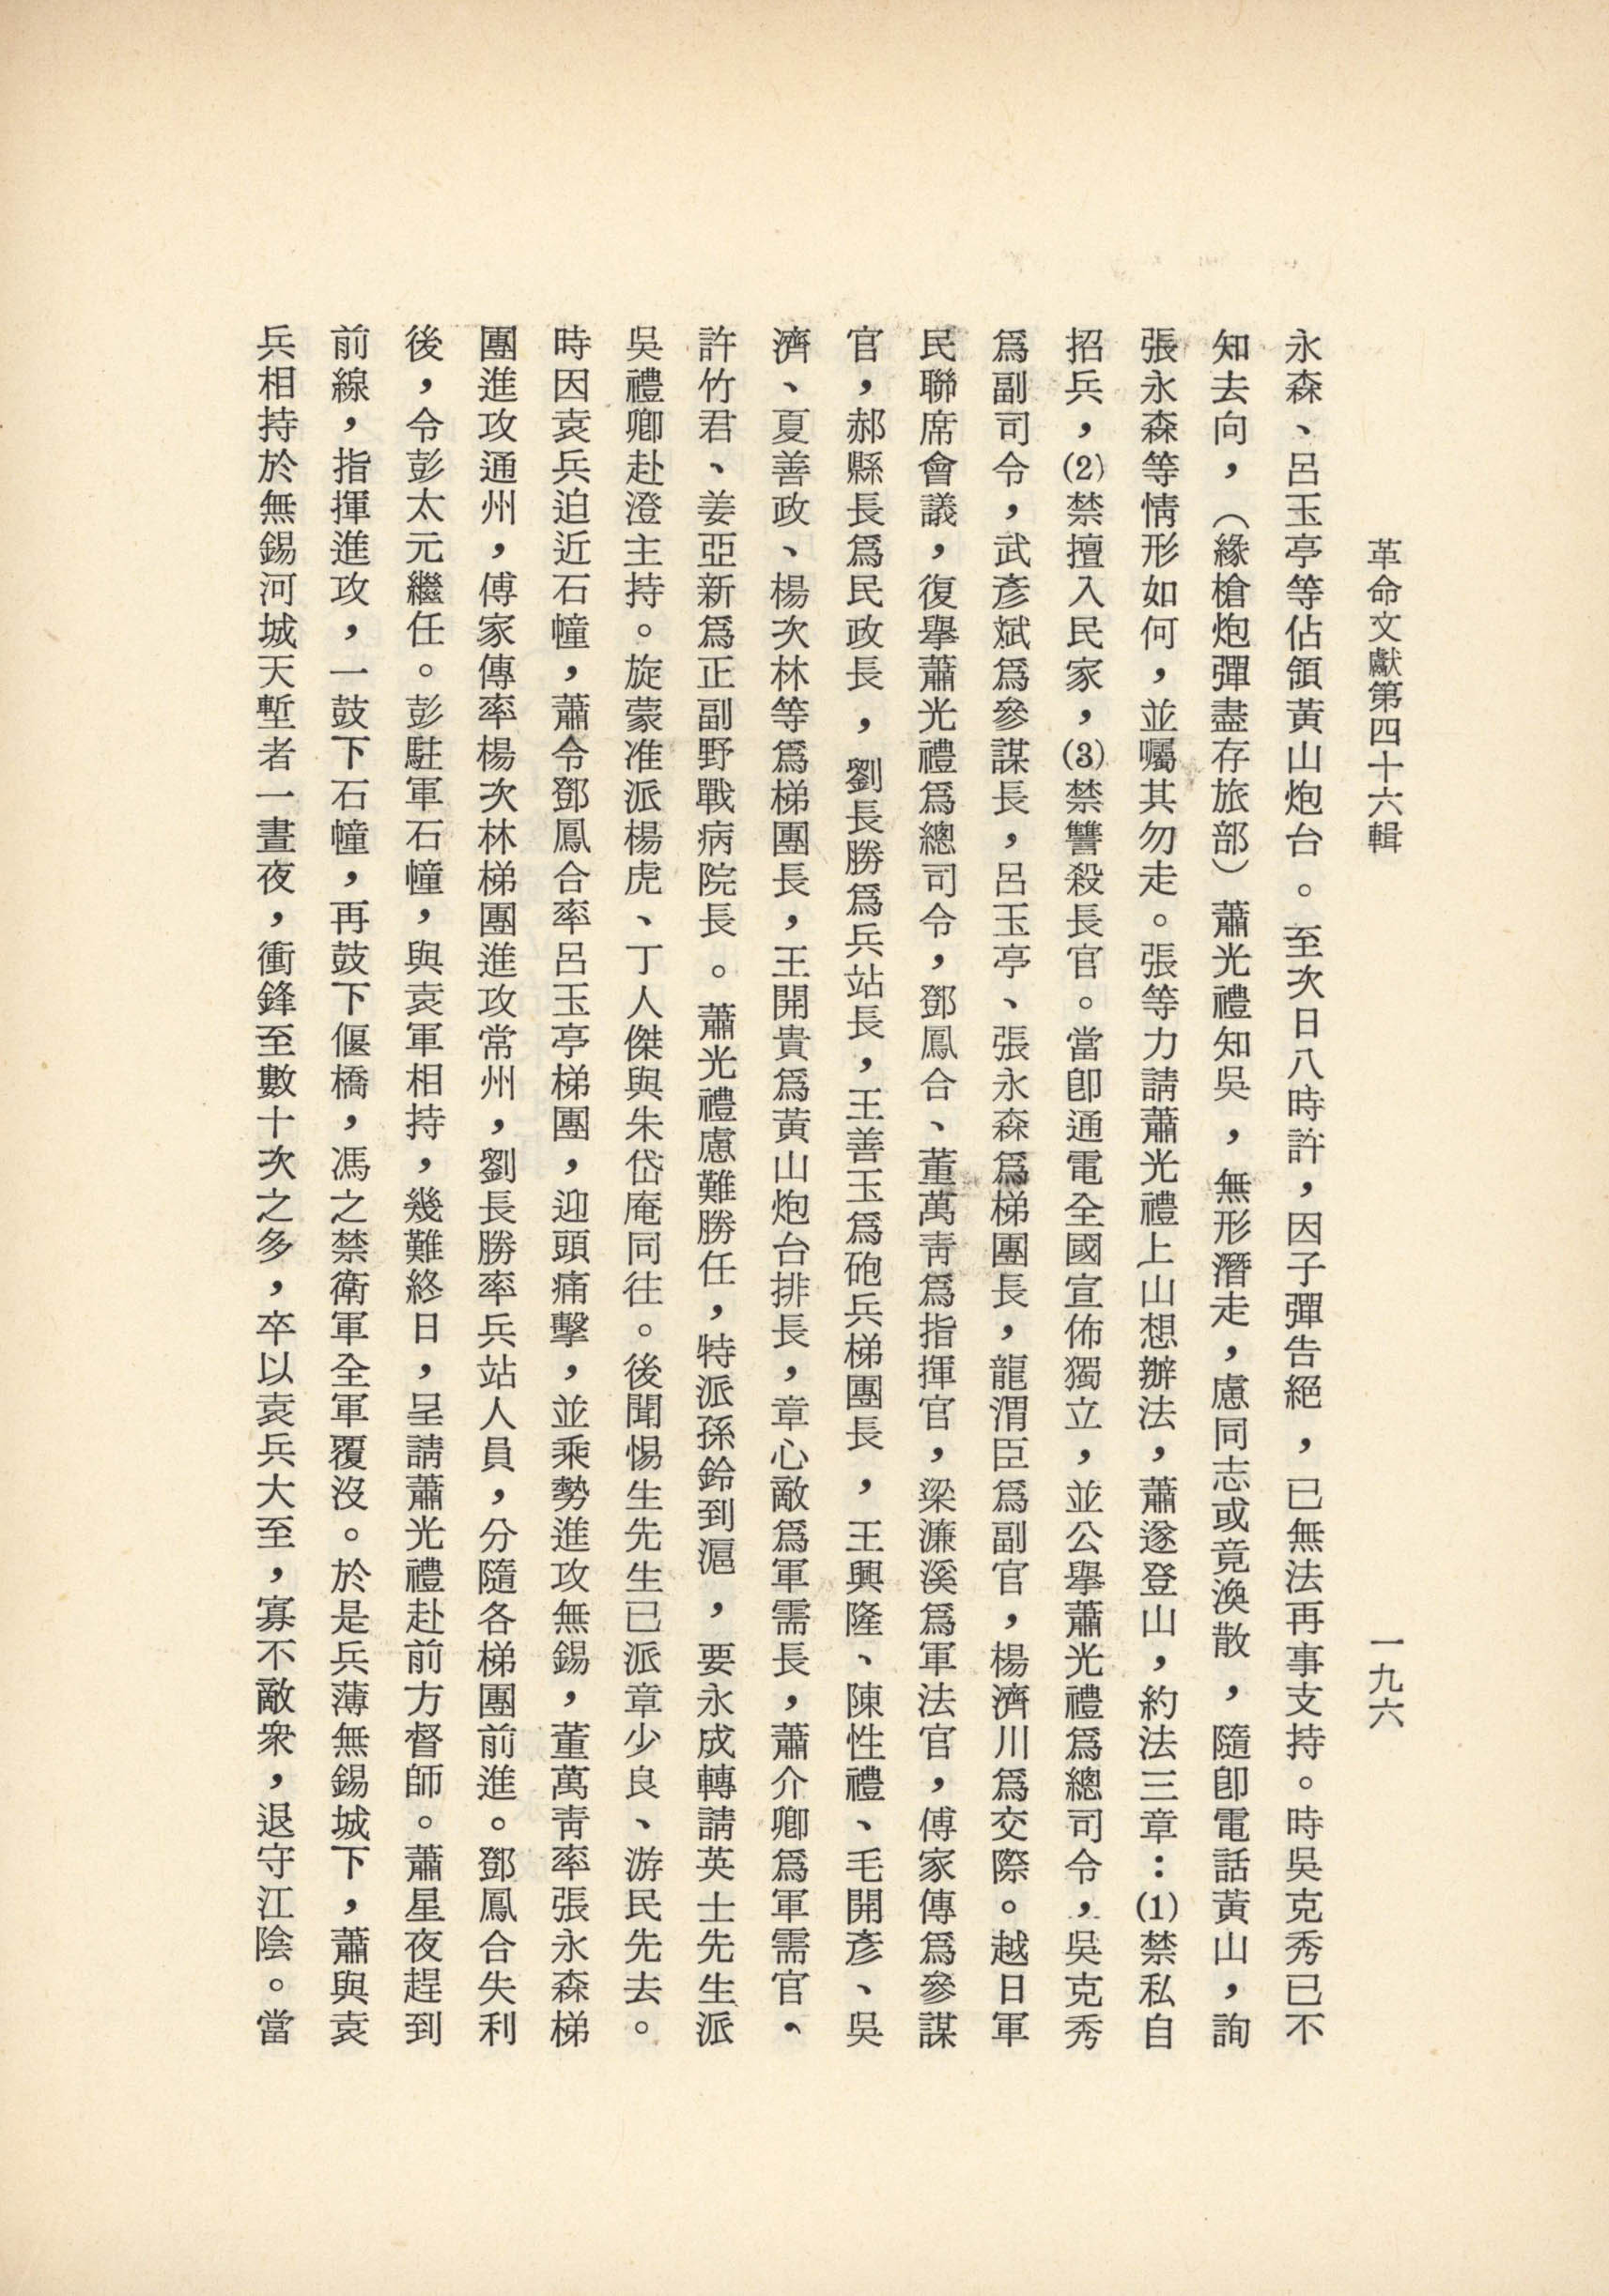 革命文獻第四十六輯
一九六
永森、呂玉亭等佔領黃山炮台。至次日八時許，因子彈告絕，已無法再事支持。時吳克秀已不
知去向，（緣槍炮彈盡存旅部）蕭光禮知吳，無形潛走，慮同志或竟渙散，隨卽電話黃山，詢
張永森等情形如何，並囑其勿走。張等力請蕭光禮上山想辦法，蕭遂登山，約法三章：(1)禁私自
招兵，(2)禁擅入民家，(3)禁讐殺長官。當卽通電全國宣佈獨立，並公舉蕭光禮爲總司令，吳克秀
爲副司令，武彥斌爲參謀長，呂玉亭、張永森爲梯團長，龍渭臣爲副官，楊濟川爲交際。越日軍
民聯席會議，復舉蕭光禮爲總司令，鄧鳳合、董萬靑爲指揮官，梁濂溪爲軍法官，傅家傳爲參謀
官，郝縣長爲民政長，劉長勝爲兵站長，王善玉爲砲兵梯團長，王興隆、陳性禮、毛開彥、吳
濟、夏善政、楊次林等爲梯團長，王開貴爲黃山炮台排長，章心敵爲軍需長，蕭介卿爲軍需官、
許竹君、姜亞新爲正副野戰病院長。蕭光禮慮難勝任，特派孫鈴到滬，要永成轉請英士先生派
吳禮卿赴澄主持。旋蒙准派楊虎、丁人傑與朱岱庵同往。後聞惕生先生已派章少良、游民先去。
時因袁兵迫近石幢，蕭令鄧鳳合率呂玉亭梯團，迎頭痛擊，並乘勢進攻無錫，董萬靑率張永森梯
團進攻通州，傅家傳率楊次林梯團進攻常州，劉長勝率兵站人員，分隨各梯團前進。鄧鳳合失利
後，令彭太元繼任。彭駐軍石幢，與袁軍相持，幾難終日，呈請蕭光禮赴前方督師。蕭星夜趕到
前線，指揮進攻，一鼓下石幢，再鼓下偃橋，馮之禁衛軍全軍覆沒。於是兵薄無錫城下，蕭與袁
兵相持於無錫河城天塹者一晝夜，衝鋒至數十次之多，卒以袁兵大至，寡不敵衆，退守江陰。當